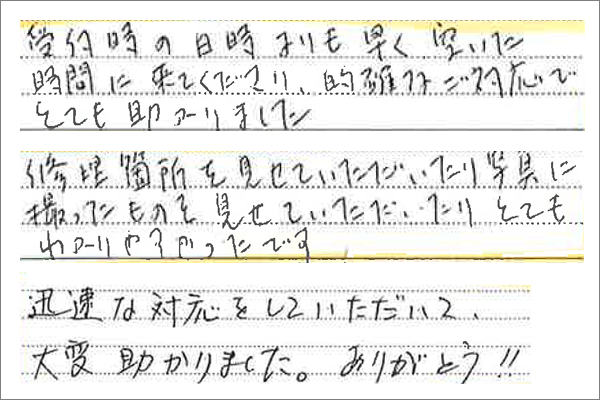 受付時の日時よりも早く空いた
時間に来てくださり、的確なご対応で
とても助かりました
修理箇所を見せていただいたり写真に
撮ったものを見せていただいたりとても
わかりやすかったです
迅速な対応をしていただいて、
大変助かりました。ありがとう!!